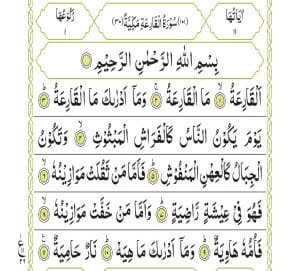 اٰيَاتُهَا ١١ (١٠١) سُوْرَةُ الْقَارِعَةِ مَكِّيَّةٌ (٣٠) رُكُوْعُهَا ١
بِسْمِ اللّٰهِ الرَّحْمٰنِ الرَّحِيْمِ
اَلْقَارِعَةُ ۝١ مَا الْقَارِعَةُ ۝٢ وَمَاۤ اَدْرٰىكَ مَا الْقَارِعَةُ ۝٣
يَوْمَ يَكُوْنُ النَّاسُ كَالْفَرَاشِ الْمَبْثُوْثِ ۝٤ وَتَكُوْنُ
الْجِبَالُ كَالْعِهْنِ الْمَنْفُوْشِ ۝٥ فَاَمَّا مَنْ ثَقُلَتْ مَوَازِيْنُهٗ ۝٦
فَهُوَ فِيْ عِيْشَةٍ رَّاضِيَةٍ ۝٧ وَاَمَّا مَنْ خَفَّتْ مَوَازِيْنُهٗ ۝٨
فَاُمُّهٗ هَاوِيَةٌ ۝٩ وَمَاۤ اَدْرٰىكَ مَا هِيَهْ ۝١٠ نَارٌ حَامِيَةٌ ۝١١